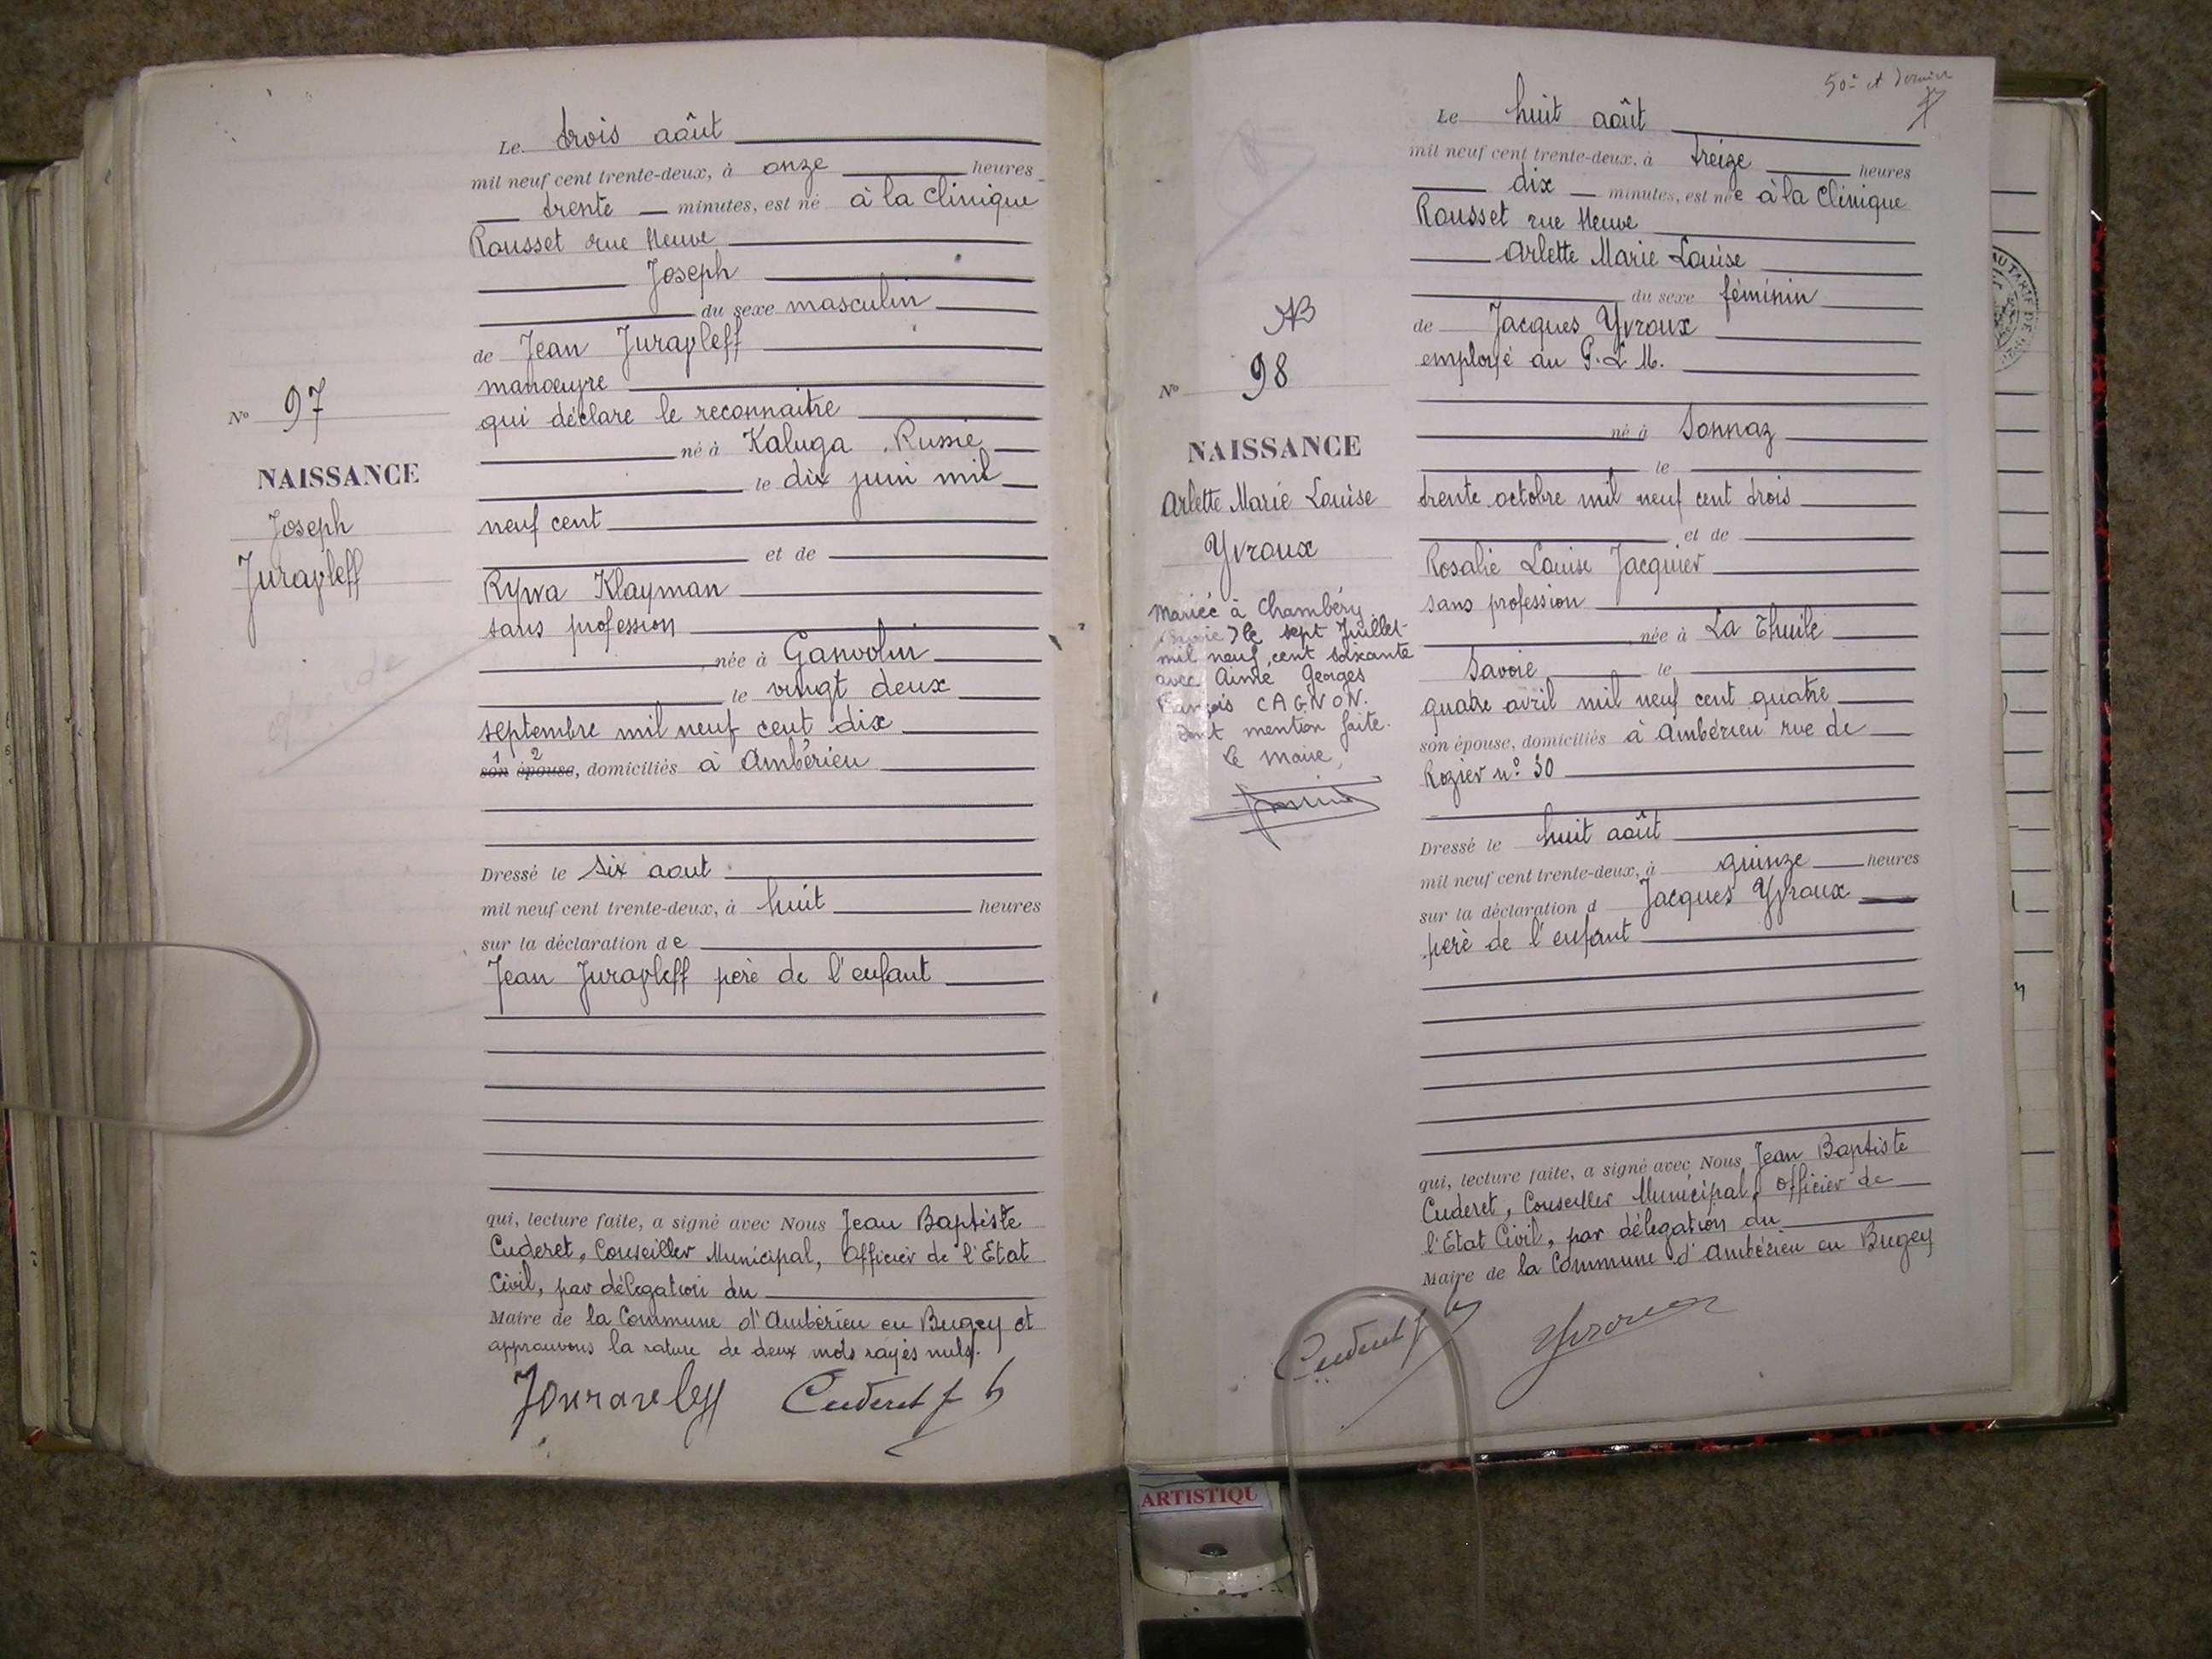 Le trois août
mil neuf cent trente-deux, à onze heures
trente minutes, est né à la Clinique
Rousset rue Neuve
Joseph
du sexe masculin
de Jean Juravleff
manoeuvre
qui déclare le reconnaitre
né à Kaluga . Russie
le dix juin mil
neuf cent
et de
Rywa Klayman
sans profession
née à Ganvolin
le vingt deux
septembre mil neuf cent dix
1 2
son épouse, domiciliés à Ambérieu
Dressé le six aout
mil neuf cent trente-deux, à huit heures
sur la déclaration de
Jean Juravleff père de l'enfant
qui, lecture faite, a signé avec Nous Jean Baptiste
Cuderet, Conseiller Municipal, Officier de l'Etat
Civil, par délégation du
Maire de la Commune d'Ambérieu en Bugey et
approuvons la rature de deux mots rayés nuls.
Cuderet J B
N° 97
NAISSANCE
Joseph
Juravleff
50e et dernier
Le huit août
mil neuf cent trente-deux, à treize heures
dix minutes, est née à la Clinique
Rousset rue Neuve
Arlette Marie Louise
du sexe féminin
de Jacques Yvroux
employé au P.L.M.
né à Sonnaz
le
trente octobre mil neuf cent trois
et de
Rosalie Louise Jacquier
sans profession
née à La Thuile
Savoie le
quatre avril mil neuf cent quatre
son épouse, domiciliés à Ambérieu rue de
Rozier n° 30
Dressé le huit août
mil neuf cent trente-deux, à quinze heures
sur la déclaration d Jacques Yvroux
père de l'enfant
qui, lecture faite, a signé avec Nous Jean Baptiste
Cuderet, Conseiller Municipal, Officier de
l'Etat Civil, par délégation du
Maire de la Commune d'Ambérieu en Bugey
Cuderet J B Yvroux
N° 98
NAISSANCE
Arlette Marie Louise
Yvroux
Mariée à Chambéry
(Savoie) le sept Juillet
mil neuf cent soixante
avec Aimé Georges
François CAGNON.
Dont mention faite.
Le Maire,
ARTISTIQU